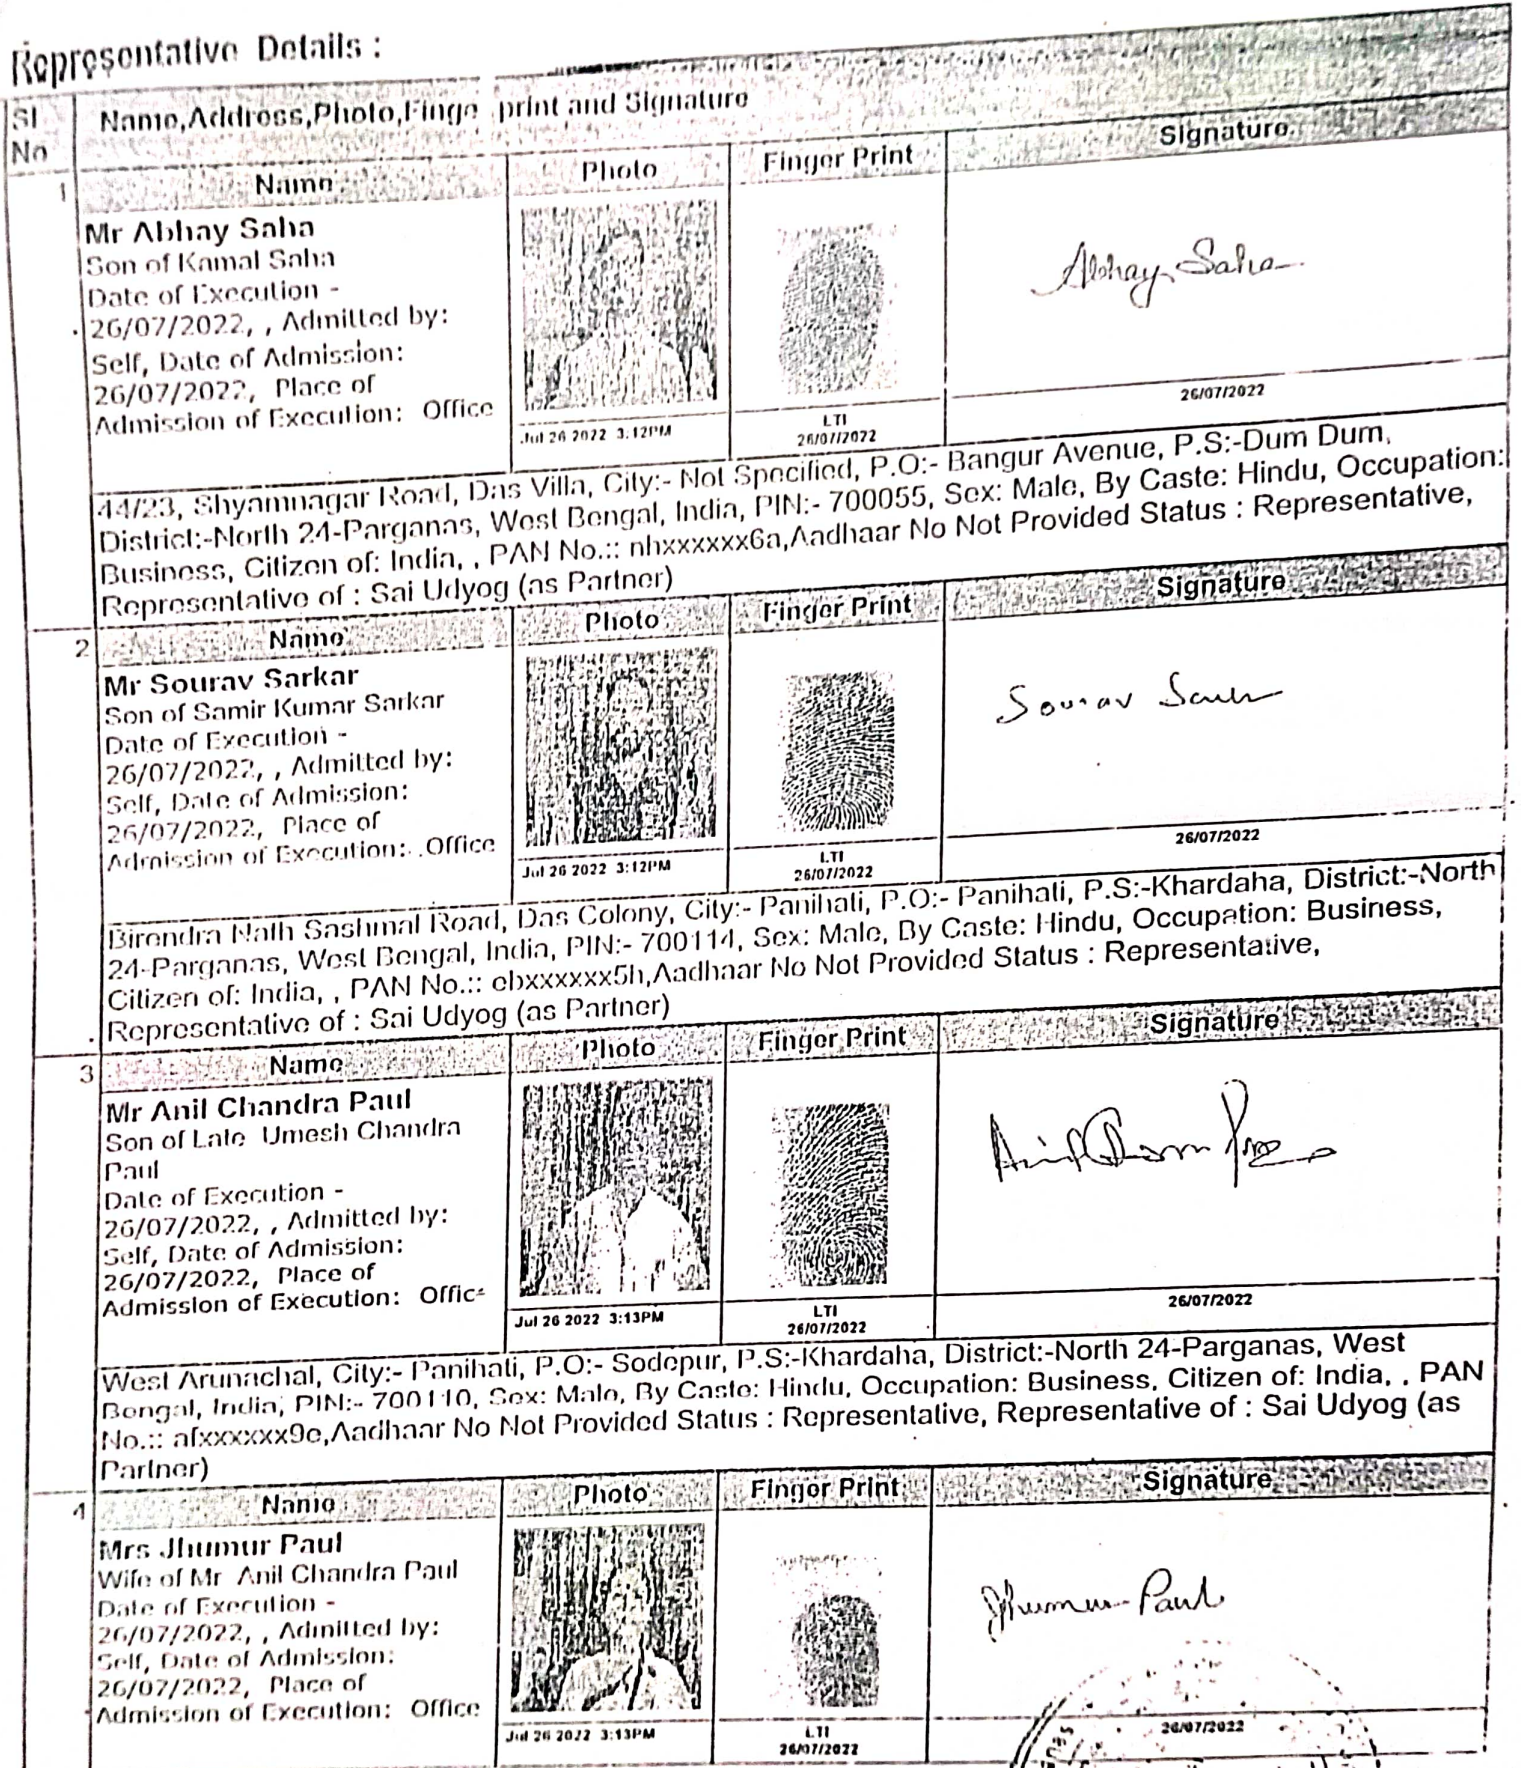 Representative Details :
Sl No
Name,Address,Photo,Finge print and Signature
1
Name
Photo
Finger Print
Signature
Mr Abhay Saha
Son of Kamal Saha
Date of Execution -
26/07/2022, , Admitted by:
Self, Date of Admission:
26/07/2022, Place of
Admission of Execution: Office
Abhay Saha
Jul 26 2022 3:12PM
LTI
26/07/2022
26/07/2022
44/23, Shyamnagar Road, Das Villa, City:- Not Specified, P.O:- Bangur Avenue, P.S:-Dum Dum,
District:-North 24-Parganas, West Bengal, India, PIN:- 700055, Sex: Male, By Caste: Hindu, Occupation:
Business, Citizen of: India, , PAN No.:: nhxxxxxx6a,Aadhaar No Not Provided Status : Representative,
Representative of : Sai Udyog (as Partner)
2
Name
Photo
Finger Print
Signature
Mr Sourav Sarkar
Son of Samir Kumar Sarkar
Date of Execution -
26/07/2022, , Admitted by:
Self, Date of Admission:
26/07/2022, Place of
Admission of Execution: Office
Sourav Sarkar
Jul 26 2022 3:12PM
LTI
26/07/2022
26/07/2022
Birendra Nath Sashmal Road, Das Colony, City:- Panihati, P.O:- Panihati, P.S:-Khardaha, District:-North
24-Parganas, West Bengal, India, PIN:- 700114, Sex: Male, By Caste: Hindu, Occupation: Business,
Citizen of: India, , PAN No.:: ebxxxxxx5h,Aadhaar No Not Provided Status : Representative,
Representative of : Sai Udyog (as Partner)
3
Name
Photo
Finger Print
Signature
Mr Anil Chandra Paul
Son of Late Umesh Chandra
Paul
Date of Execution -
26/07/2022, , Admitted by:
Self, Date of Admission:
26/07/2022, Place of
Admission of Execution: Office
Jul 26 2022 3:13PM
LTI
26/07/2022
26/07/2022
West Arunachal, City:- Panihati, P.O:- Sodepur, P.S:-Khardaha, District:-North 24-Parganas, West
Bengal, India, PIN:- 700110, Sex: Male, By Caste: Hindu, Occupation: Business, Citizen of: India, , PAN
No.:: afxxxxxx9e,Aadhaar No Not Provided Status : Representative, Representative of : Sai Udyog (as
Partner)
4
Name
Photo
Finger Print
Signature
Mrs Jhumur Paul
Wife of Mr Anil Chandra Paul
Date of Execution -
26/07/2022, , Admitted by:
Self, Date of Admission:
26/07/2022, Place of
Admission of Execution: Office
Jhumur Paul
Jul 26 2022 3:13PM
LTI
26/07/2022
26/07/2022